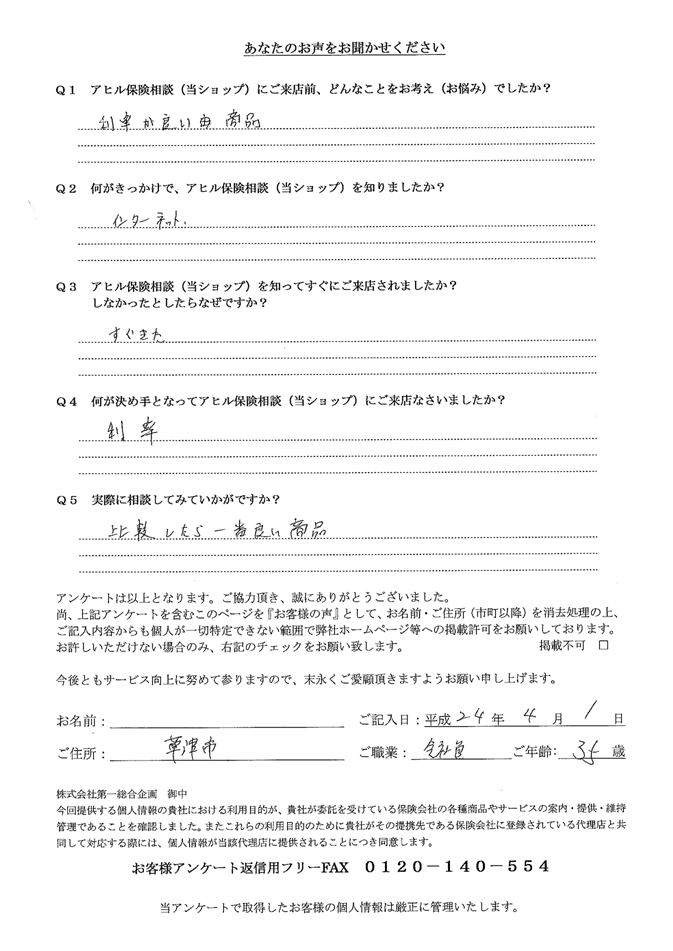 あなたのお声をお聞かせください
Q1　アヒル保険相談（当ショップ）にご来店前、どんなことをお考え（お悩み）でしたか？
利率が良い 商品
Q2　何がきっかけで、アヒル保険相談（当ショップ）を知りましたか？
インターネット.
Q3　アヒル保険相談（当ショップ）を知ってすぐにご来店されましたか？
しなかったとしたらなぜですか？
すぐきた
Q4　何が決め手となってアヒル保険相談（当ショップ）にご来店なさいましたか？
利率
Q5　実際に相談してみていかがですか？
比較したら一番良い商品
アンケートは以上となります。ご協力頂き、誠にありがとうございました。
尚、上記アンケートを含むこのページを『お客様の声』として、お名前・ご住所（市町以降）を消去処理の上、
ご記入内容からも個人が一切特定できない範囲で弊社ホームページ等への掲載許可をお願いしております。
お許しいただけない場合のみ、右記のチェックをお願い致します。　掲載不可　□
今後ともサービス向上に努めて参りますので、末永くご愛顧頂きますようお願い申し上げます。
お名前：　ご記入日：平成 24 年 4 月 1 日
ご住所：　草津市　ご職業：会社員　ご年齢：35 歳
株式会社第一総合企画　御中
今回提供する個人情報の貴社における利用目的が、貴社が委託を受けている保険会社の各種商品やサービスの案内・提供・維持
管理であることを確認しました。またこれらの利用目的のために貴社がその提携先である保険会社に登録されている代理店と共
同して対応する際には、個人情報が当該代理店に提供されることにつき同意します。
お客様アンケート返信用フリーFAX　０１２０－１４０－５５４
当アンケートで取得したお客様の個人情報は厳正に管理いたします。